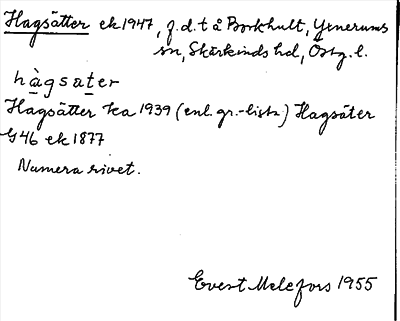 Hagsätter ek 1947, f.d.t å Borkhult, Yxnerums
sn, Skärkinds hd, Östg. l.
hàgsater
Hagsätter ka 1939 (enl. gr.-lista) Hagsäter
G46 ek 1877
Numera rivet.
Evert Melefors 1955